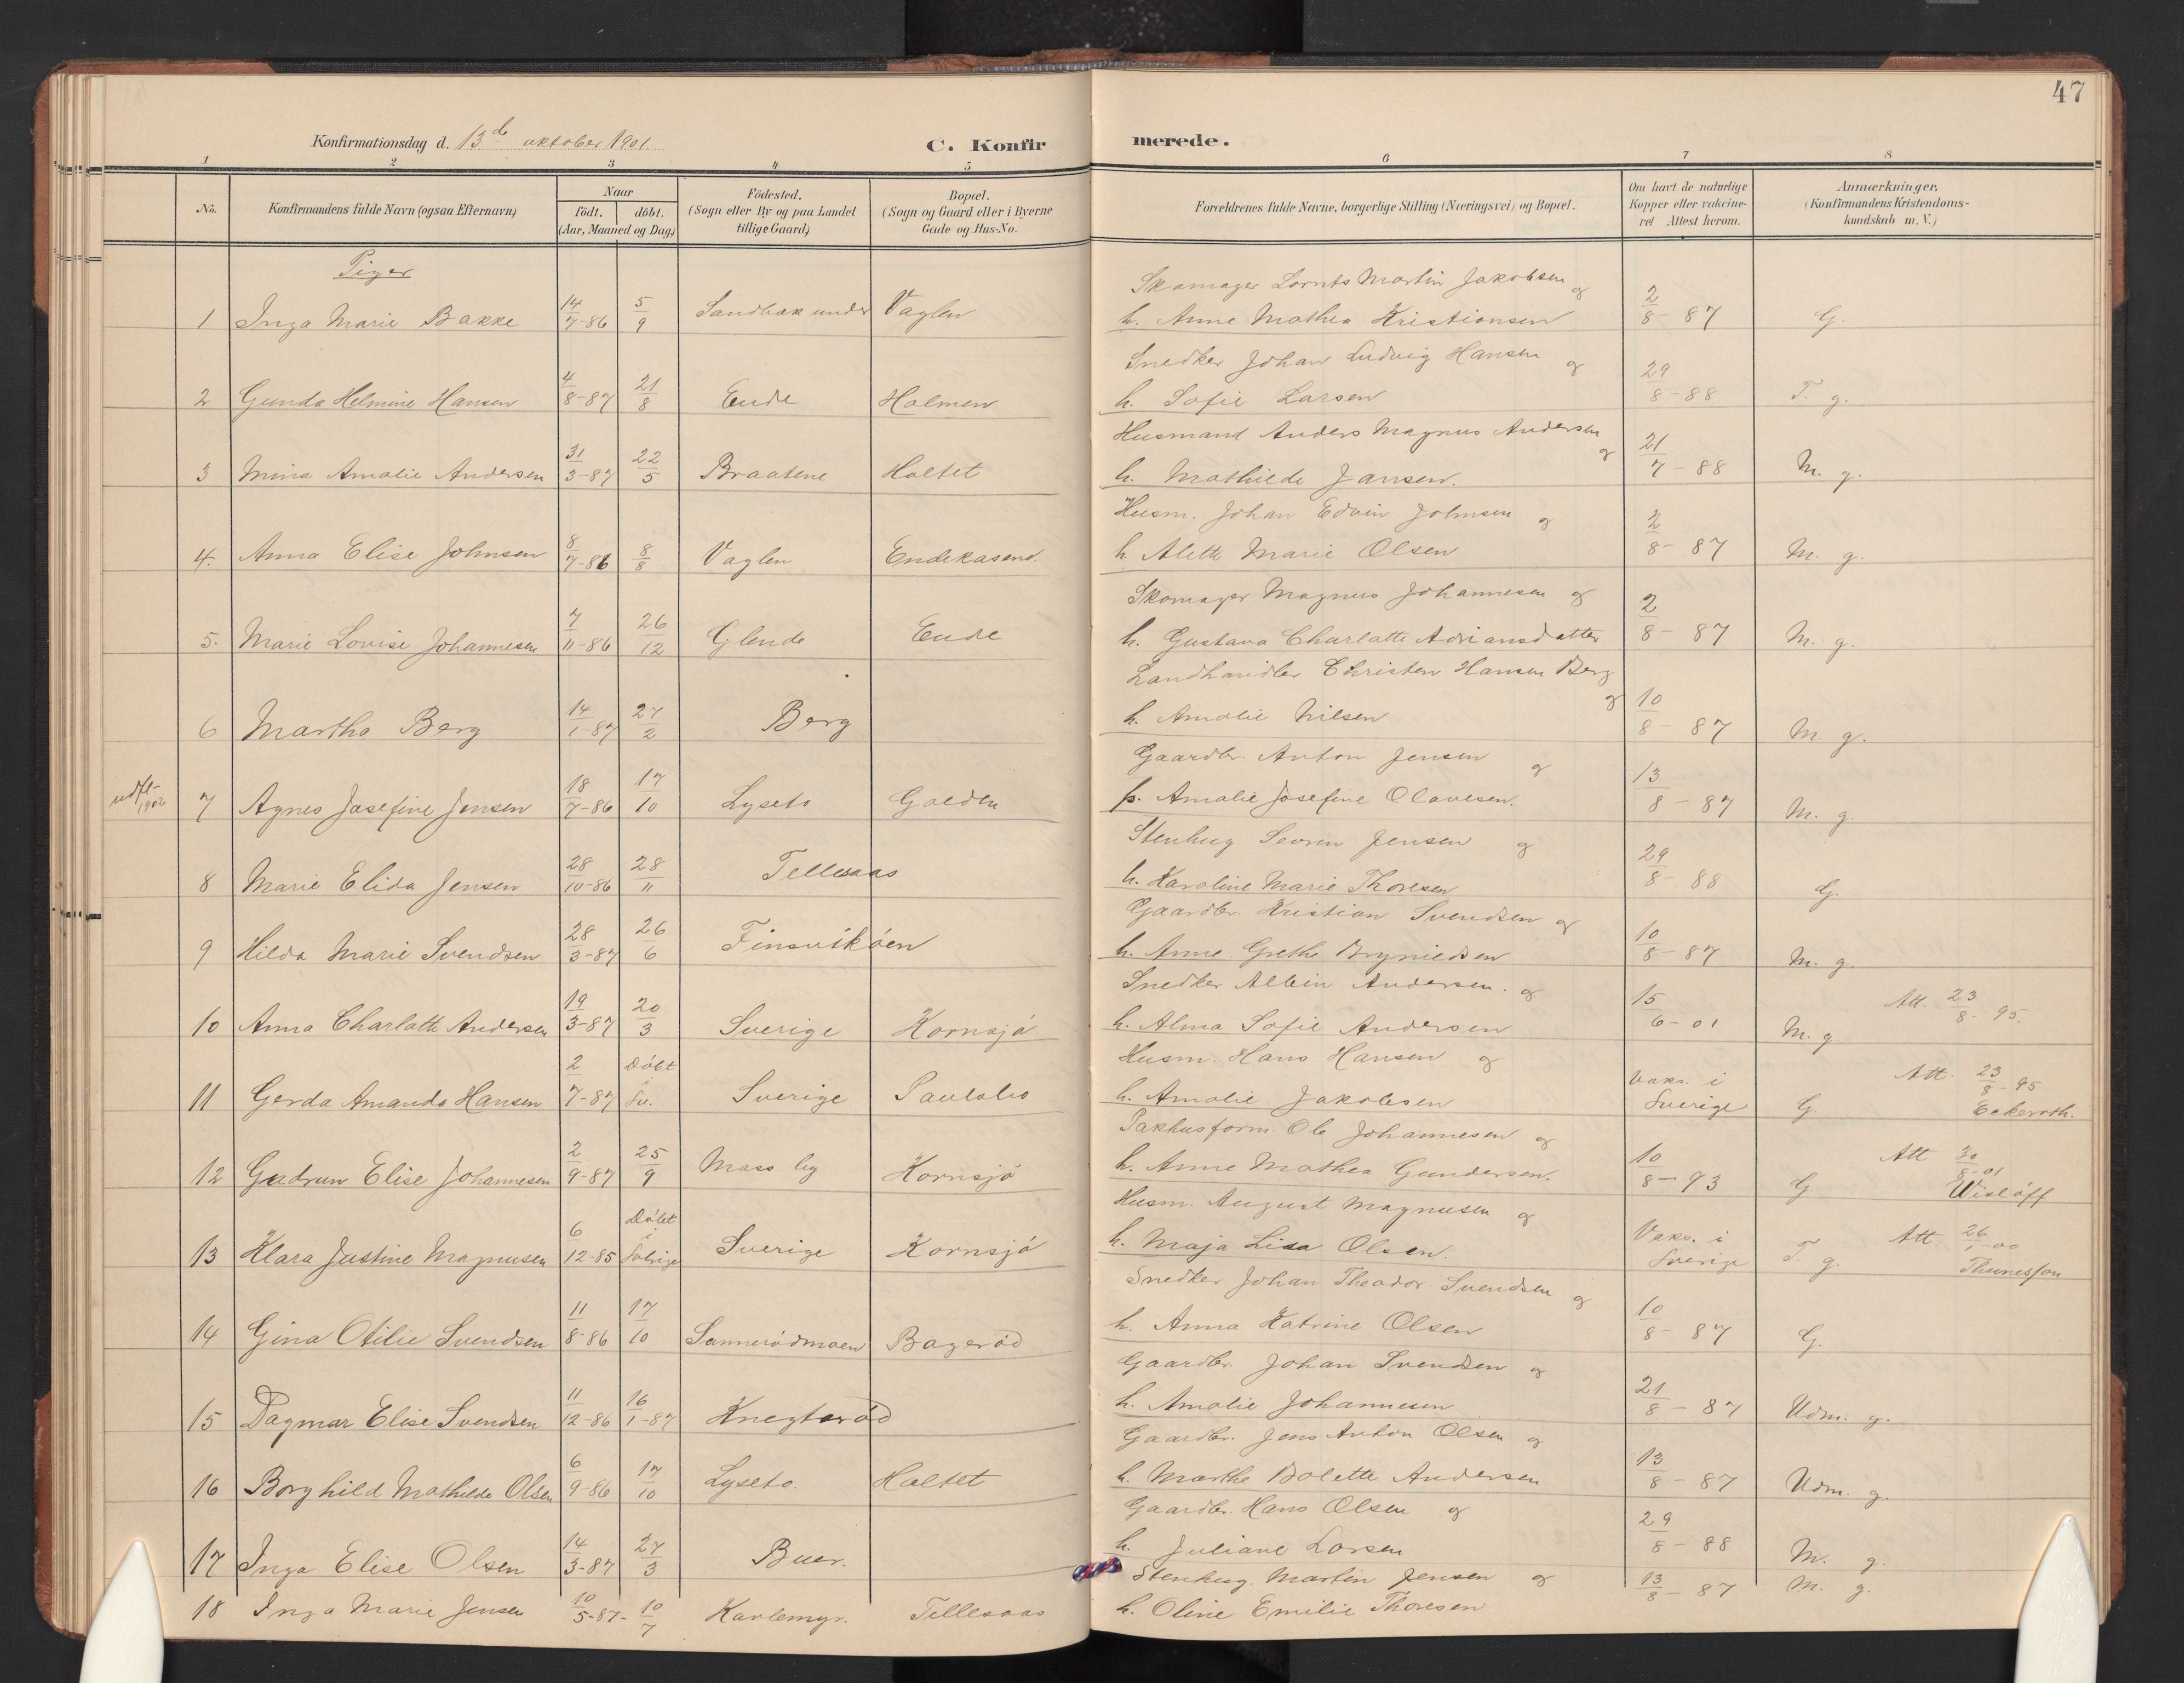 47
Konfirmationsdag d. 13de oktober 1901.
C. Konfirmerede.
1 2 3 4 5 6 7 8
No.
Konfirmandens fulde Navn (ogsaa Efternavn)
Naar
födt. döbt.
(Aar, Maaned og Dag)
Födested.
(Sogn eller By og paa Landet
tillige Gaard)
Bopæl.
(Sogn og Gaard eller i Byerne
Gade og Hus-No.
Forældrenes fulde Navne, borgerlige Stilling (Næringsvei) og Bopæl.
Om havt de naturlige
Kopper eller vakcine-
ret Attest herom.
Anmærkninger.
(Konfirmandens Kristendoms-
kundskab m. V.)
Piger
Skomager Lornts Martin Jakobsen og
1 Inga Marie Bakke 14/7-86 5/9 Sandbak under Vaglen h. Anne Mathea Kristiansen 2/8-87 G.
Snedker Johan Ludvig Hansen og
2 Gunda Helmine Hansen 4/8-87 21/8 Ende Holmen h. Sofie Larsen 29/8-88 T. g.
Husmand Anders Magnus Andersen og
3 Mina Amalie Andersen 31/3-87 22/5 Braatene Holtet h. Mathilde Jansen. 21/7-88 M. g.
Husm. Johan Edvin Johnsen og
4. Anna Elise Johnsen 8/7-86 8/8 Vaglen Endekasend. h. Alette Marie Olsen 2/8-87 M. g.
Skomager Magnus Johannesen og
5. Marie Lovise Johannesen 7/11-86 26/12 Glende Ende h. Gustava Charlotte Adriansdatter 2/8-87 M. g.
Landhandler Christen Hansen Berg og
6 Martha Berg 14/1-87 27/2 Berg h. Amalie Nilsen 10/8-87 M. g.
Gaardbr. Anton Jensen og
udfl- 1902 7 Agnes Josefine Jensen 18/7-86 17/10 Lyseto Goeden h. Amalie Josefine Olavesen. 13/8-87 M. g.
Stenhug Sevrin Jensen og
8 Marie Elida Jensen 28/10-86 28/11 Tellesaas h. Karoline Marie Thoresen 29/8-88 G.
Gaardbr. Kristian Svendsen og
9 Hilda Marie Svendsen 28/3-87 26/6 Finsvikøen h. Anne Grethe Brynildsen 10/8-87 M. g.
Snedker Albin Andersen. og
10 Anna Charlotte Andersen 19/3-87 20/3 Sverige Kornsjø h. Alma Sofie Andersen 15/6-01 M. g. Att. 23/8-95.
Husm. Hans Hansen og
11 Gerda Amanda Hansen 2/7-87 Döbt i Sv. Sverige Paulsbo h. Amalie Jakobsen Vaks. i Sverige G. Att. 23/8-95 Eckeroth.
Pakhusform. Ole Johannesen og
12 Gudrun Elise Johannesen 2/9-87 25/9 Moss by Kornsjø h. Anne Mathea Gundersen. 10/8-93 G Att 30/8-01 Wisløff
Husm. August Magnusen og
13 Klara Justine Magnusen 6/12-85 Döbt i Sverige Sverige Kornsjø h. Maja Lisa Olsen Vaks. i Sverige T. g. Att. 26/1-00 Thunesson
Snedker Johan Theodor Svendsen og
14 Gina Otilie Svendsen 11/8-86 17/10 Sannerödmoen Bageröd h. Anna Katrine Olsen 10/8-87 G.
Gaardbr. Johan Svendsen og
15 Dagmar Elise Svendsen 11/12-86 16/1-87 Knegteröd h. Amalie Johannesen 21/8-87 Udm. g.
Gaardbr. Jens Anton Olsen og
16 Borghild Mathilde Olsen 6/9-86 17/10 Lyseto. Holtet h. Marthe Bolette Andersen 13/8-87 Udm. g.
Gaardbr. Hans Olsen og
17 Inga Elise Olsen 14/3-87 27/3 Buer. h. Juliane Larsen 29/8-88 M. g.
Stenhug. Martin Jensen og
18 Inga Marie Jensen 10/5-87- 10/7 Kavlemyr. Tellesaas h. Oline Emilie Thoresen 13/8-87 M. g.